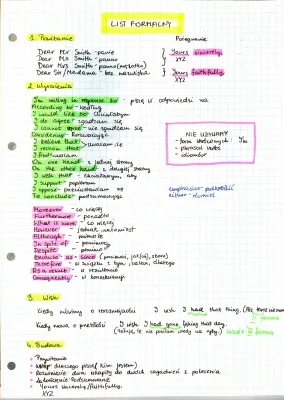 LIST FORMALNY
1. Powitanie
Pożegnanie
Dear Mr Smith - panie
Dear Ms Smith - panno
Dear Mrs Smith - panno (mężatka)
Dear Sir/Madame - bez nazwiska
Yours sincerely,
XYZ
Yours faithfully,
XYZ
2. Wyrażenia
I'm writing in response to - piszę w odpowiedzi na
According to - według
I would like to - chciałabym
I do agree - zgadzam się
I cannot agree - nie zgadzam się
Considering - Rozważając
I believe that
I reckon that
- uważam że
I find - uważam
On one hand - z jednej strony
On the other hand - z drugiej strony
I wish that - chciałabym, aby
I support - popieram
I oppose - przeciwstawiam się
To conclude - podsumowując
NIE UŻYWAMY
- form skróconych: I'm
- phrasal verbs
- idiomów
emphasise - podkreślić
either - również
Moreover - co więcej
Furthermore - ponadto
What is more - co więcej
However - jednak, natomiast
Although - mimo że
In spite of - pomimo
Despite - pomimo
Because = as = since
Therefore - w związku z tym, zatem, dlatego
As a result - w rezultacie
Consequently - w konsekwencji
3. Wish
Kiedy mówimy o teraźniejszości I wish I had that thing.
II forma
Kiedy mowa o przeszłości I wish I had gone fishing that day.
had + III forma
4. Budowa
Powitanie
Wstęp
Rozwinięcie dwa akapity do dwóch zagadnień z polecenia
Zakończenie Podsumowanie
Yours sincerely/faithfully,
XYZ